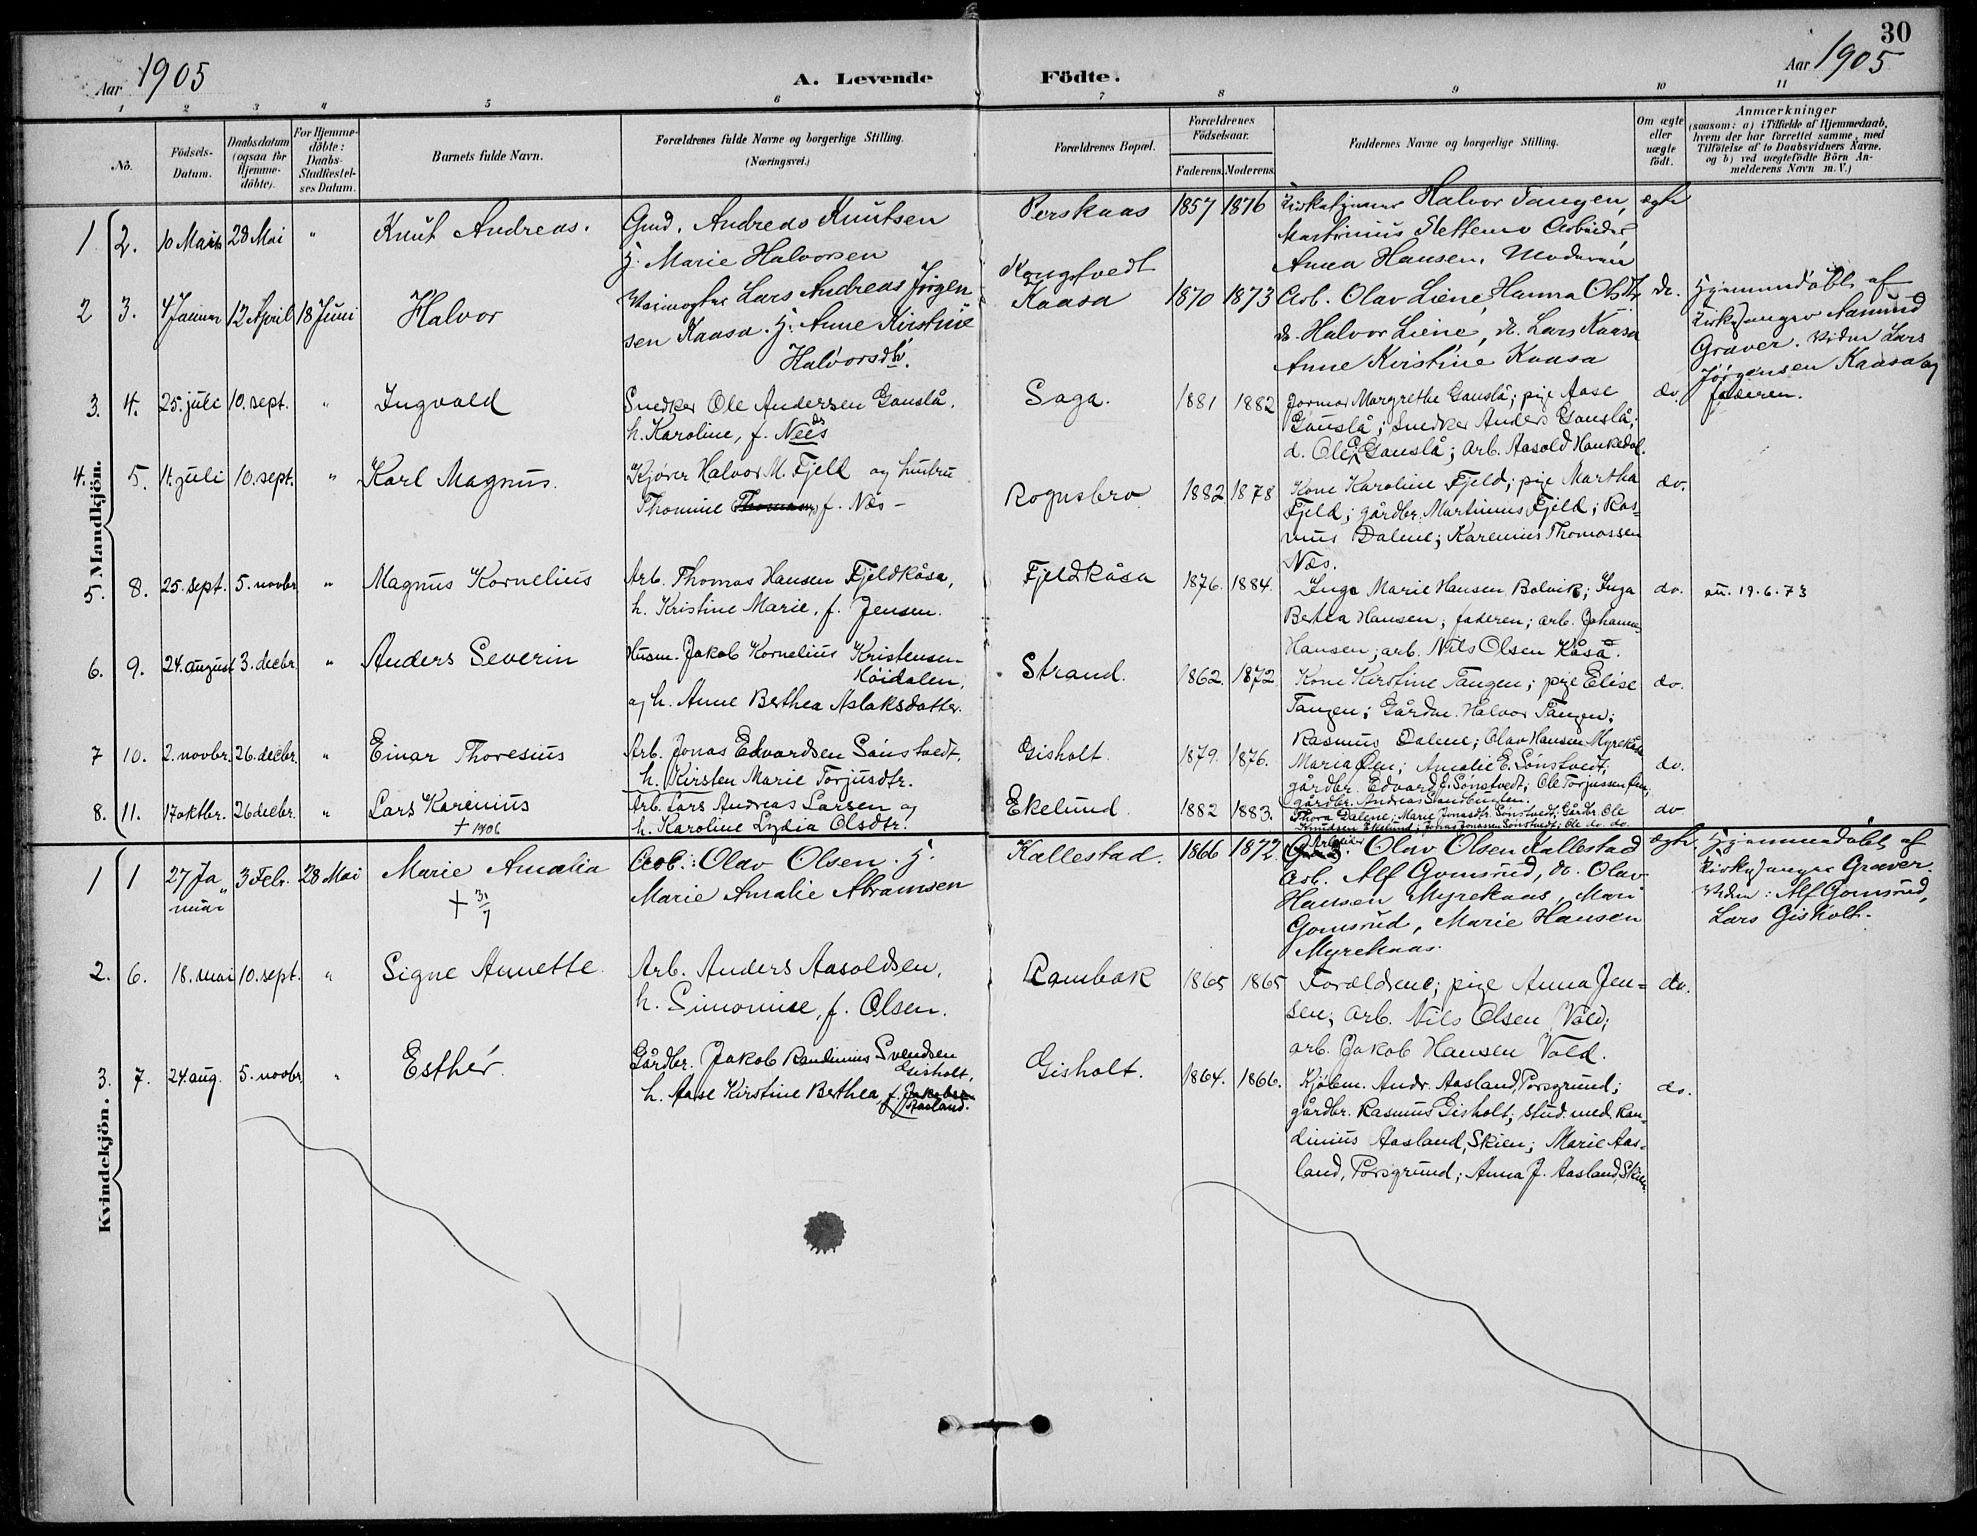 30
Aar 1905
A. Levende Födte.
Aar 1905
1 2 3 4 5 6 7 8 9 10 11
No.
Födsels-Datum.
Daabsdatum (ogsaa for Hjemme-döbte).
For Hjemme-döbte: Daabs-Stadfestel-ses Datum.
Barnets fulde Navn.
Forældrenes fulde Navne og borgerlige Stilling. (Næringsvei.)
Forældrenes Bopæl.
Forældrenes Födselsaar.
Faderens. Moderens.
Faddernes Navne og borgerlige Stilling.
Om ægte eller uægte födt.
Anmærkninger (saasom: a) i Tilfælde af Hjemmedaab, hvem der har forrettet samme, med Tilföielse af to Daabsvidners Navne, og b) ved uægtefödte Börn An-melderens Navn m. V.)
Mandkjön.
1 2. 10 Marts 28 Mai " Knut Andreas.
Gmd. Andreas Knutsen
H. Marie Halvorsen
Perskaas 1857 1876
Kirkesanger Halvor Tangen,
Martinius Slettemo Arbeider,
Anna Hansen, Moderen
ægte
2 3. 4 Januar 12 April 18 Juni Halvor
Lars Andreas Jörgen
sen Kaasa. H. Anne Kirstine
Halvorsdtr.
Kongstvedt
Kaasa 1870 1873
Arb. Olav Liene, Hanna Olsdtr
do. Halvor Liene, do. Lars Kaasa
Anne Kirstine Kaasa
do.
Hjemmedöbt af
Kirkesanger Aamund
Graver. Vidner Lars
Jörgensen Kaasa og
faderen.
3. 4. 25. juli 10. sept. " Ingvald
Snedker Ole Andersen Gauslå.
h. Karoline, f. Næs
Saga. 1881 1882
Jormor Margrethe Gauslå; pige Aase
Gauslå; Snedker Anders Gauslå;
d. Ole E. Gauslå; arb. Aasold Haukedal.
do.
4. 5. 11. juli 10. sept. " Karl Magnus.
Kjører Halvor M. Fjeld og hustru
Thomine Thomasen f. Næs –
Rognsbro 1882 1878
Kone Karoline Fjeld; pige Martha
Fjeld; gårdbr. Martinius Fjeld; Ras-
mus Dalene; Karenius Thomassen
Næs.
do.
5) 8. 25. sept. 5. novbr. " Magnus Kornelius
Arb. Thomas Hansen Fjeldkåsa,
h. Kristine Marie, f. Jensen.
Fjeldkåsa 1876. 1884.
Inga Marie Hansen Bolvik; Inga
Berthea Hansen; faderen; arb. Johannes
Hansen; arb. Nils Olsen Kåsa.
do. 19.6.73
6. 9. 24. august 3. decbr. " Anders Severin
Husm. Jakob Kornelius Kristensen
Höidalen,
og h. Anne Berthea Aslaksdatter.
Strand. 1862. 1872.
Kone Kirstine Tangen; pige Elise
Tangen; Gårdm. Halvor Tangen;
Rasmus Dalene; Olav Hansen Myrekåsa
do.
7 10. 2. novbr. 26. decbr. " Einar Thoresius
Arb. Jonas Edvardsen Sönstvedt,
h. Kirsten Marie Torjusdtr.
Gisholt. 1879. 1876.
Maria Øen; Amalie E. Sönstvedt;
gårdbr. Edvard J. Sönstvedt; Ole Torjussen Øen;
gårdbr. Andreas
do.
8. 11. 17 oktbr. 26 decbr. " Lars Karenius
+ 1906
Arb. Lars Andreas Larsen og
h. Karoline Lydia Olsdtr.
Ekelund. 1882 1883.
Thora Dalene; Marie Jonasdtr. Sönstvedt; Gårdbr. Ole
Knudsen Ekelund; Jonas Jonasen Sönstvedt; Ole do. do.
do
Kvindekjön.
1 1 27 Ja
nuar 3 Febr. 28 Mai Marie Amalia
+ 31/7
Arb: Olav Olsen. H.
Marie Amalie Abramsen
Kallestad. 1866 1872.
Arbeider Olav Olsen Kallestad
Arb. Alf Gomsrud, do. Olav
Hansen Myrekaas, Mari
Gomsrud, Marie Hansen
Myrekaas.
ægte.
Hjemmedöbt af
Kirkesanger Graver.
Vidner: Alf Gomsrud,
Lars Gisholt.
2. 6. 18. mai 10. sept. " Signe Annette.
Arb. Anders Aasoldsen,
h. Simonine, f. Olsen.
Rambak 1865 1865
Forældrene; pige Anna Jen=
sen; arb. Nils Olsen Vold;
arb. Jakob Hansen Vold.
do.
3. 7. 24. aug. 5. novbr " Esther.
Gårdbr. Jakob Randinius Svendsen
Gisholt,
h. Aase Kirstine Berthea, f. Jakobsen
Aasland.
Gisholt. 1864. 1866.
Kjøbm. Andr. Aasland, Porsgrund;
gårdbr. Rasmus Gisholt; stud. med. Ran-
dinius Aasland, Skien; Marie Aas-
land, Porsgrund; Anna J. Aasland, Skien.
do.